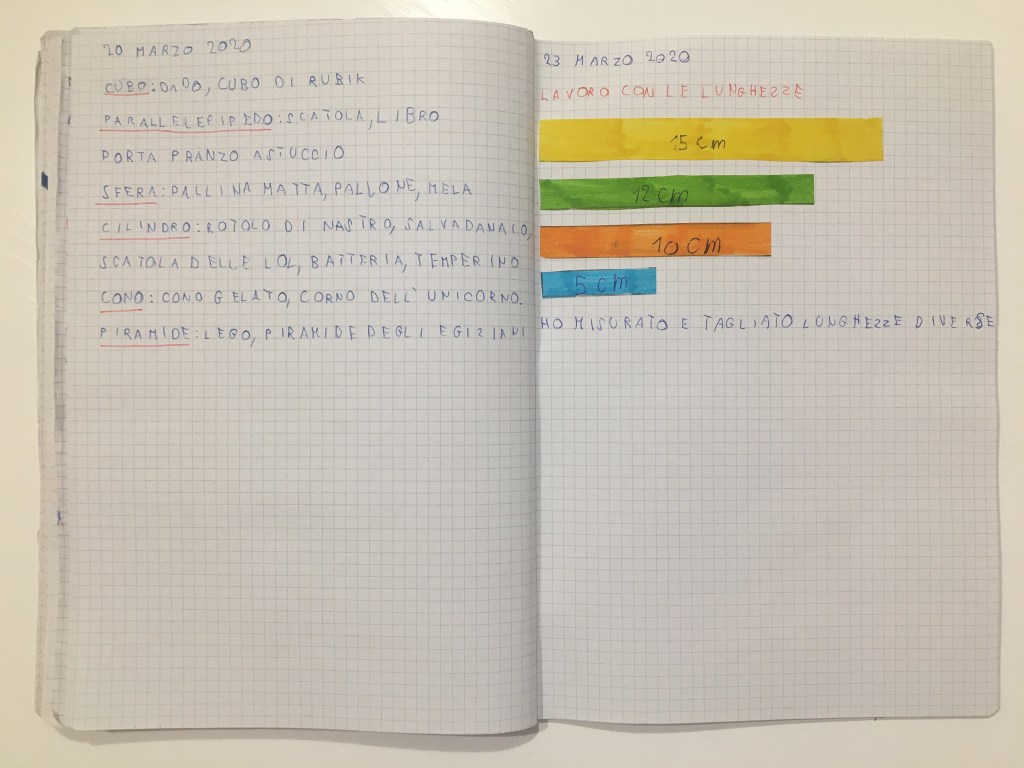 20 MARZO 2020
CUBO: DADO, CUBO DI RUBIK
PARALLELEPIPEDO: SCATOLA, LIBRO
PORTA PRANZO ASTUCCIO
SFERA: PALLINA MATTA, PALLONE, MELA
CILINDRO: ROTOLO DI NASTRO, SALVADANAIO,
SCATOLA DELLE LOL, BATTERIA, TEMPERINO
CONO: CONO GELATO, CORNO DELL'UNICORNO.
PIRAMIDE: LEGO, PIRAMIDE DEGLI EGIZIANI
23 MARZO 2020
LAVORO CON LE LUNGHEZZE
15 cm
12 cm
10 cm
5 cm
HO MISURATO E TAGLIATO LUNGHEZZE DIVERSE